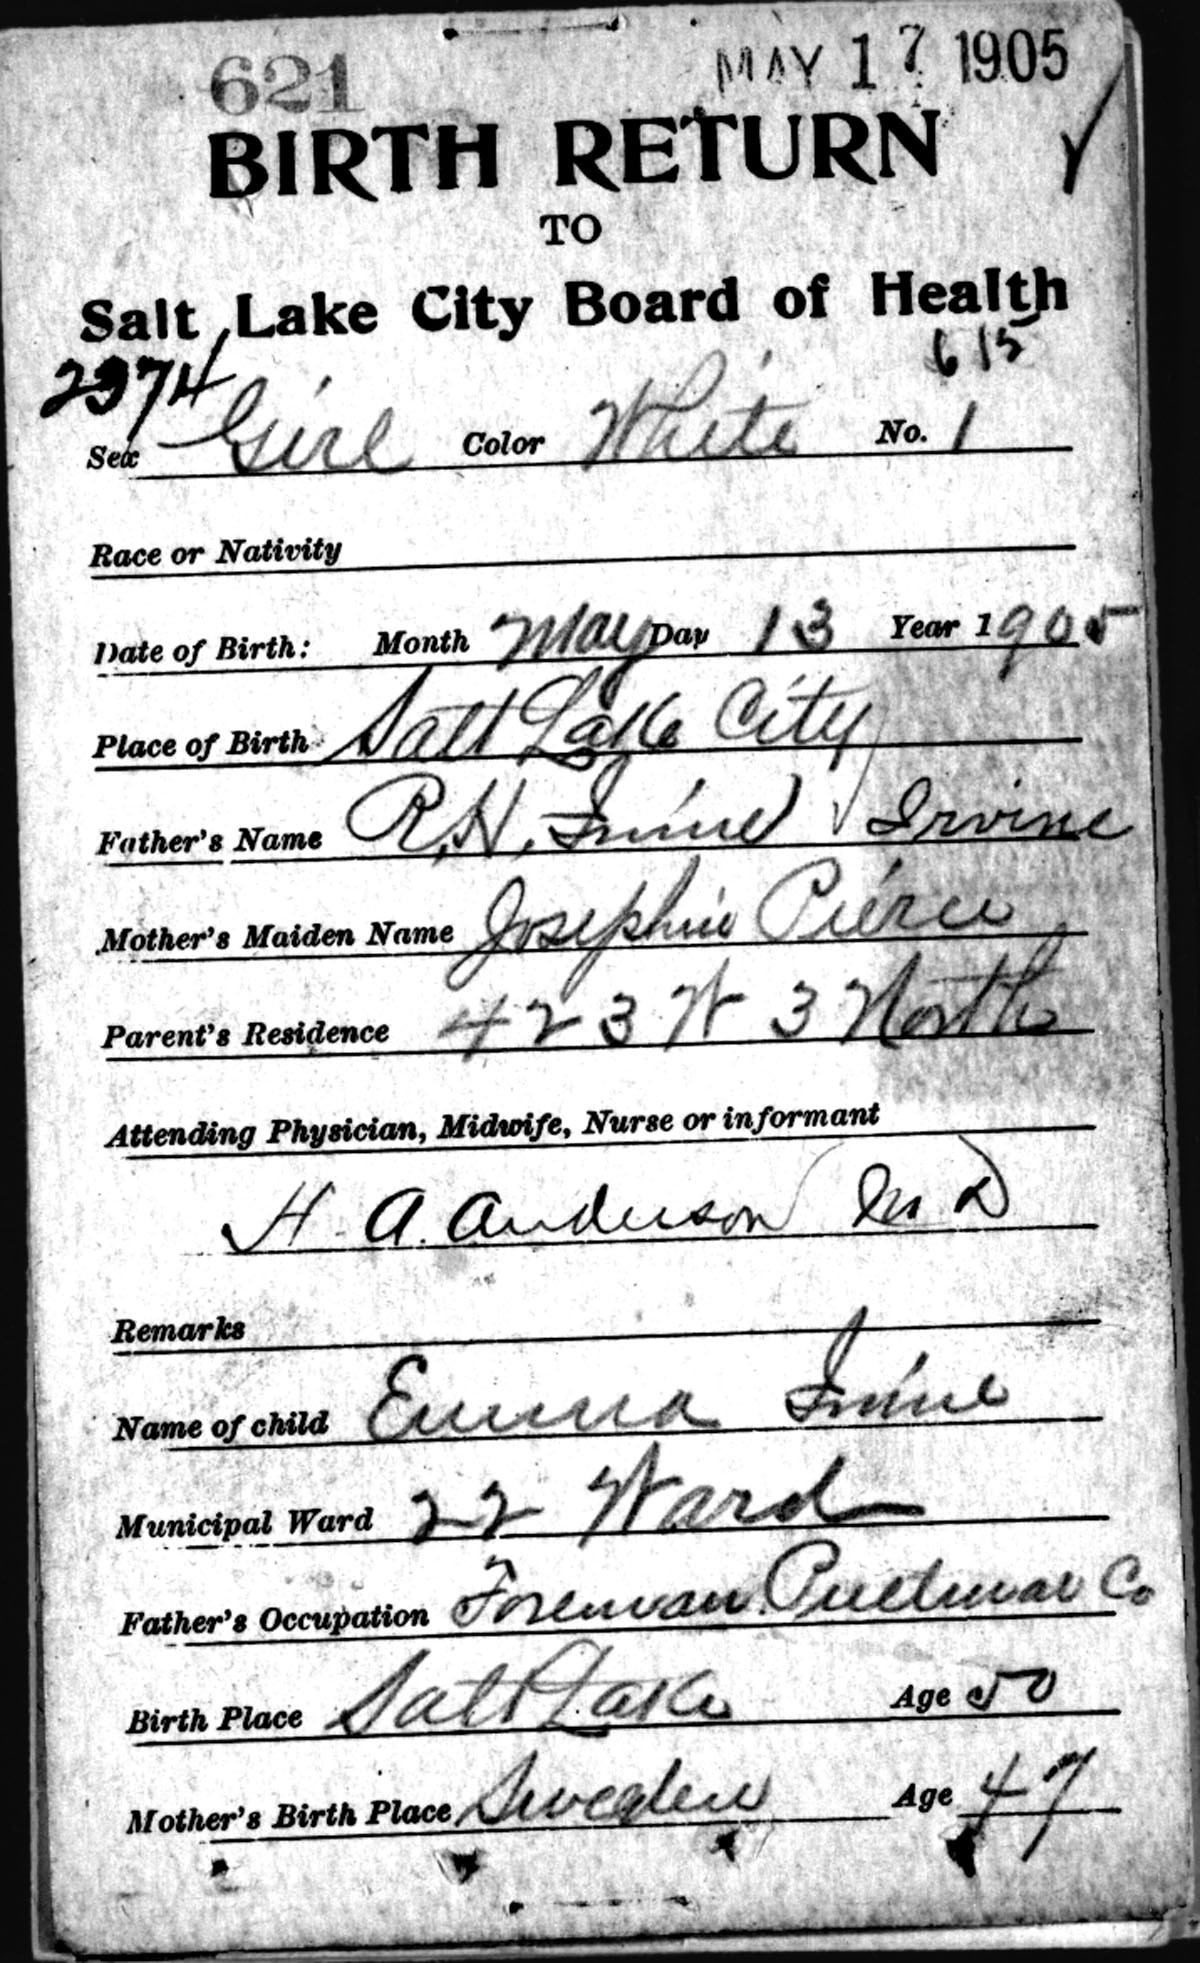 621 MAY 17 1905
BIRTH RETURN
TO
Salt Lake City Board of Health
2374 615
Sex Girl Color White No. 1
Race or Nativity
Date of Birth: Month May Day 13 Year 1905
Place of Birth Salt Lake City
Father's Name R. H. Irvine Irvine
Mother's Maiden Name Josephine Pierce
Parent's Residence 423 W 3 North
Attending Physician, Midwife, Nurse or informant
H. A. Anderson M D
Remarks
Name of child Emma Irvine
Municipal Ward 22 Ward
Father's Occupation Foreman Pullman Co
Birth Place Salt Lake Age 50
Mother's Birth Place Sweden Age 47